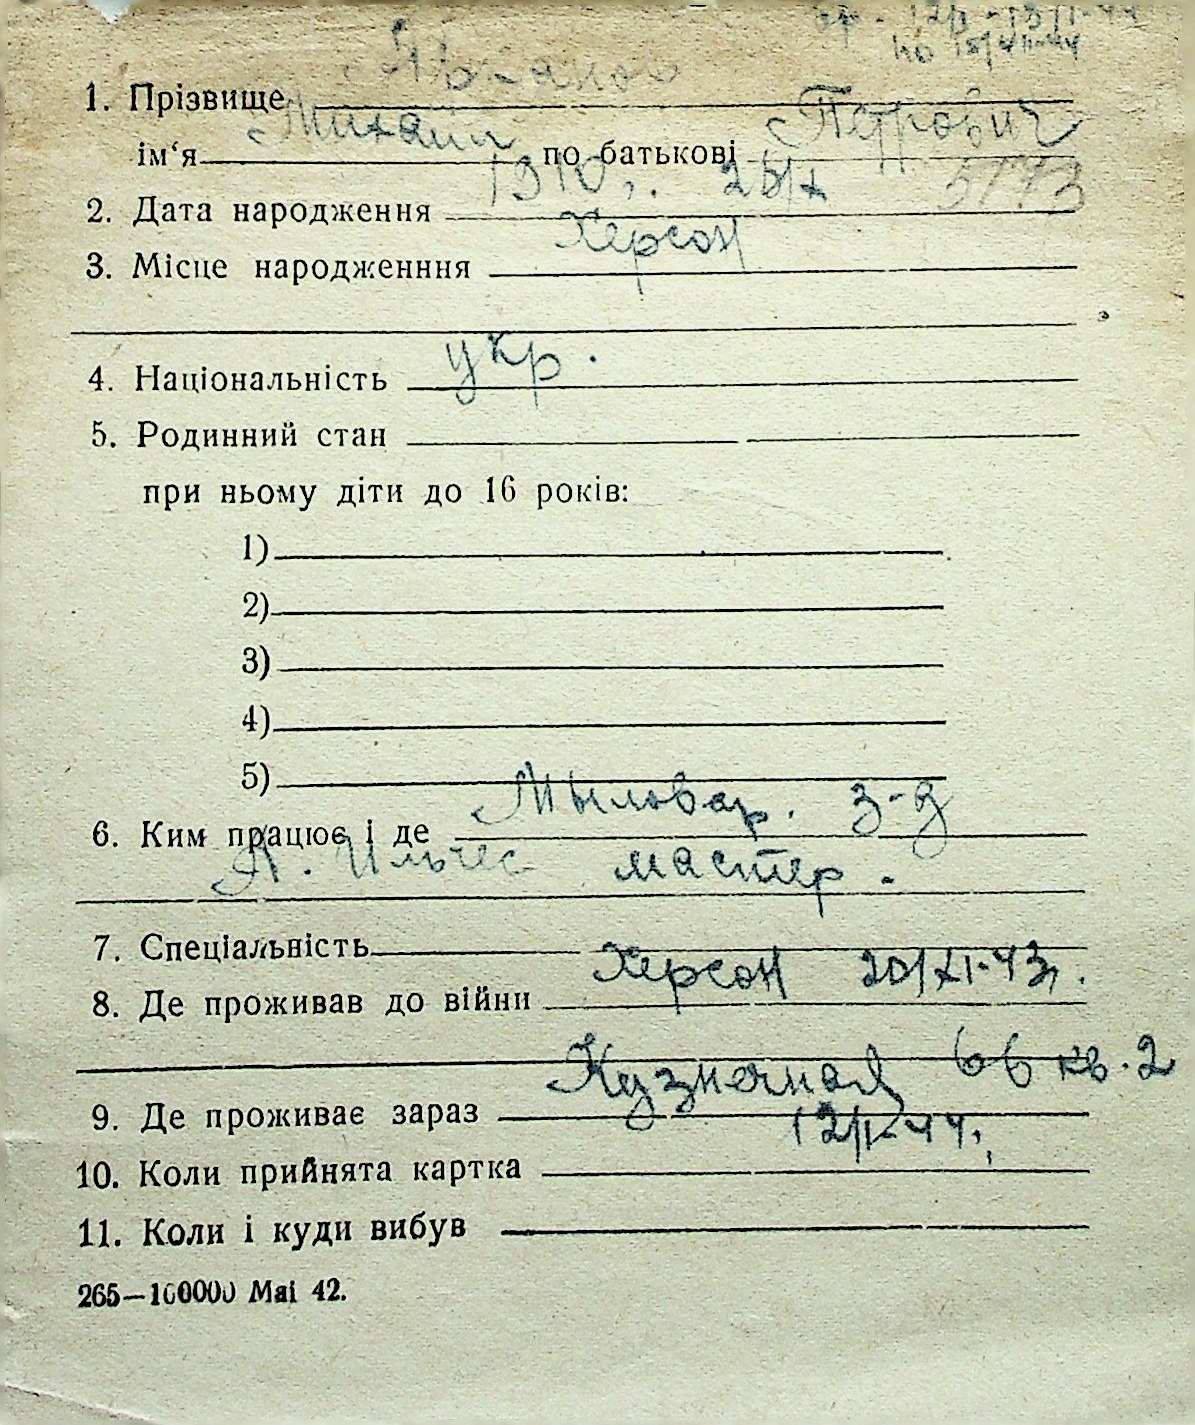 1. Прізвище
ім‘я Михаил по батькові Петрович
2. Дата народження 1910 5173
3. Місце народженння Херсон
4. Національність укр.
5. Родинний стан
при ньому діти до 16 років:
1)
2)
3)
4)
5)
6. Ким працює і де Мыловар. з-д
мастер.
7. Спеціальність
8. Де проживав до війни Херсон 20/XI-43
9. Де проживає зараз Кузнечная 66 кв. 2
10. Коли прийнята картка 12/I-44
11. Коли і куди вибув
265—100000 Mai 42.